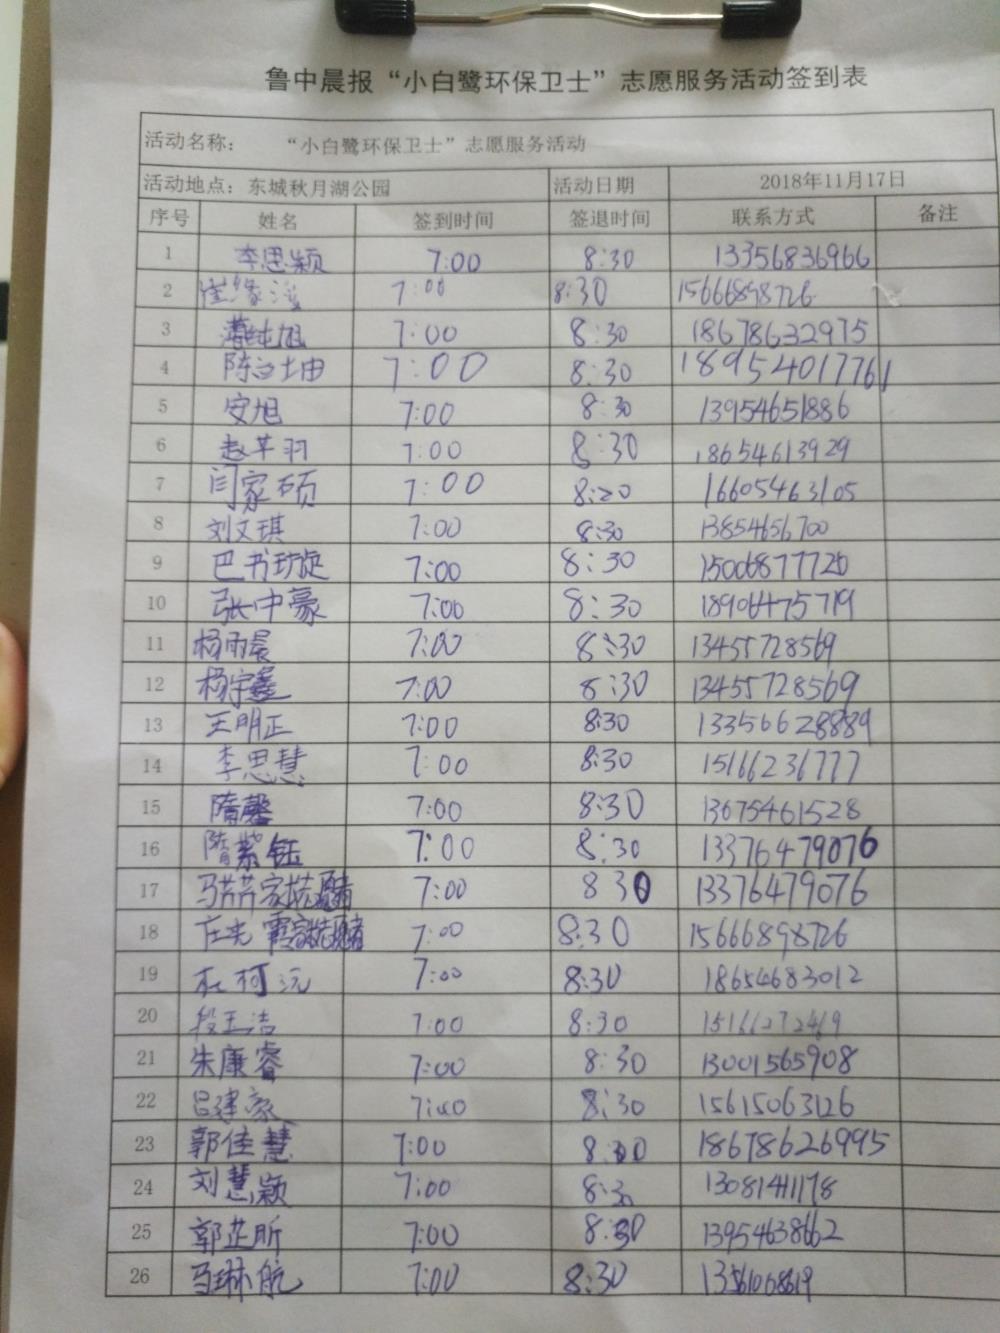 鲁中晨报“小白鹭环保卫士”志愿服务活动签到表
活动名称： “小白鹭环保卫士”志愿服务活动
活动地点：东城秋月湖公园 活动日期 2018年11月17日
序号 姓名 签到时间 签退时间 联系方式 备注
1 李思颖 7:00 8:30 13356836966
2 7:00 8:30 15666898726
3 7:00 8:30 18678632975
4 7:00 8:30 18954017761
5 安旭 7:00 8:30 13954651886
6 7:00 8:30 18654613929
7 闫家硕 7:00 8:30 16605463105
8 刘文琪 7:00 8:30 13854656700
9 巴书璇 7:00 8:30 15006877720
10 张中豪 7:00 8:30 18906475719
11 杨雨晨 7:00 8:30 13455728569
12 杨宇鑫 7:00 8:30 13455728569
13 王明正 7:00 8:30 13356628889
14 李思慧 7:00 8:30 15166236777
15 隋馨 7:00 8:30 13675461528
16 隋紫钰 7:00 8:30 13376479076
17 7:00 8 30 13376479076
18 7:00 8:30 15666898726
19 杜柯沅 7:00 8:30 18654683012
20 段玉洁 7:00 8:30 15166272469
21 朱康睿 7:00 8:30 13001565908
22 吕建豪 7:00 8:30 15615063126
23 郭佳慧 7:00 8:30 18678626995
24 刘慧颖 7:00 8:30 13081411178
25 郭芷昕 7:00 8:30 13954638662
26 马琳航 7:00 8:30 13561068619